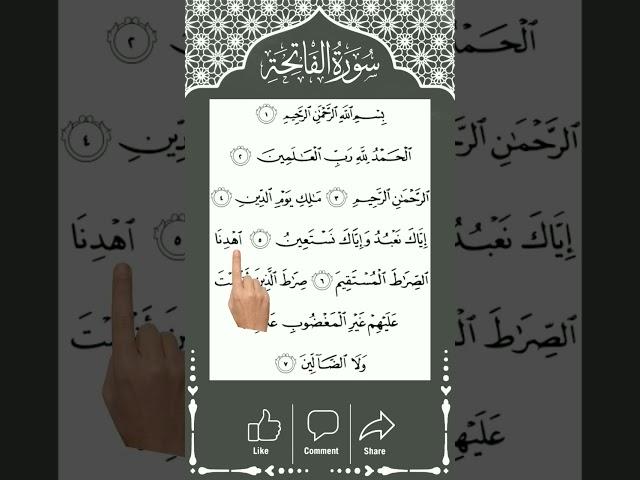 سُورَةُ الْفَاتِحَةِ
بِسْمِ ٱللَّهِ ٱلرَّحْمَٰنِ ٱلرَّحِيمِ ١
ٱلْحَمْدُ لِلَّهِ رَبِّ ٱلْعَـٰلَمِينَ ٢
ٱلرَّحْمَٰنِ ٱلرَّحِيمِ ٣ مَـٰلِكِ يَوْمِ ٱلدِّينِ ٤
إِيَّاكَ نَعْبُدُ وَإِيَّاكَ نَسْتَعِينُ ٥ ٱهْدِنَا
ٱلصِّرَٰطَ ٱلْمُسْتَقِيمَ ٦ صِرَٰطَ ٱلَّذِينَ
عَلَيْهِمْ غَيْرِ ٱلْمَغْضُوبِ
وَلَا ٱلضَّآلِّينَ ٧
Like Comment Share